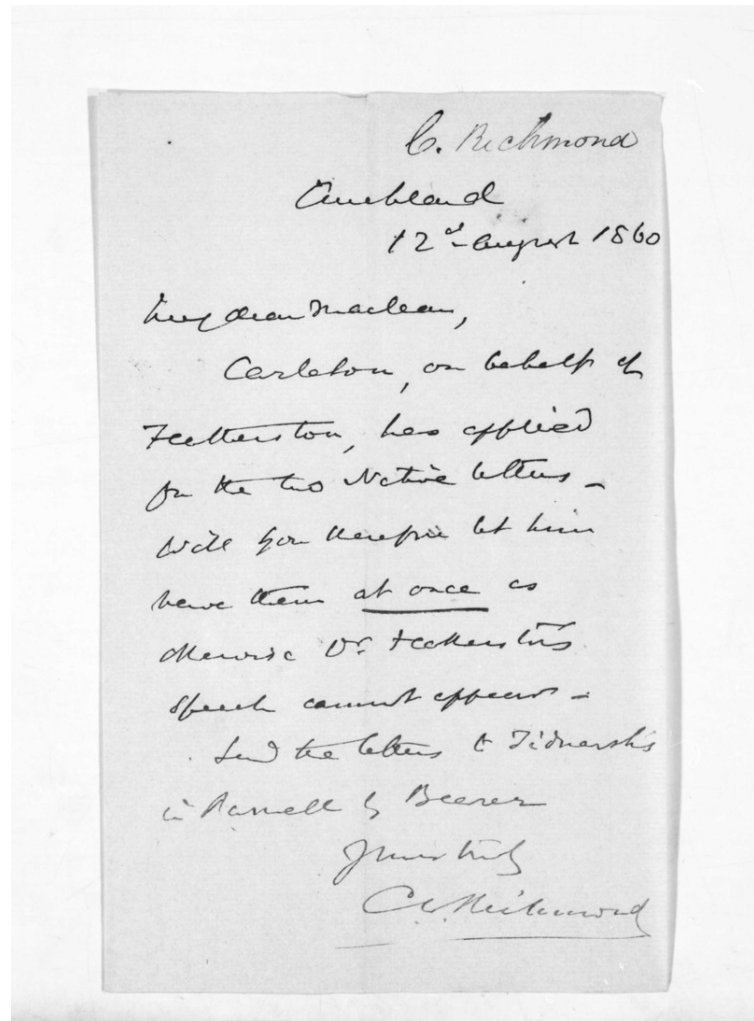 C. Richmond
Auckland
12th August 1860
My dear Maclean,
Carleton, on behalf of
Featherston, has applied
for the two Native letters -
Will you therefore let him
have them at once as
otherwise Dr. Featherston's
speech cannot appear -
Send the letters to
in Parnell by Bearer
Yours truly
C W Richmond